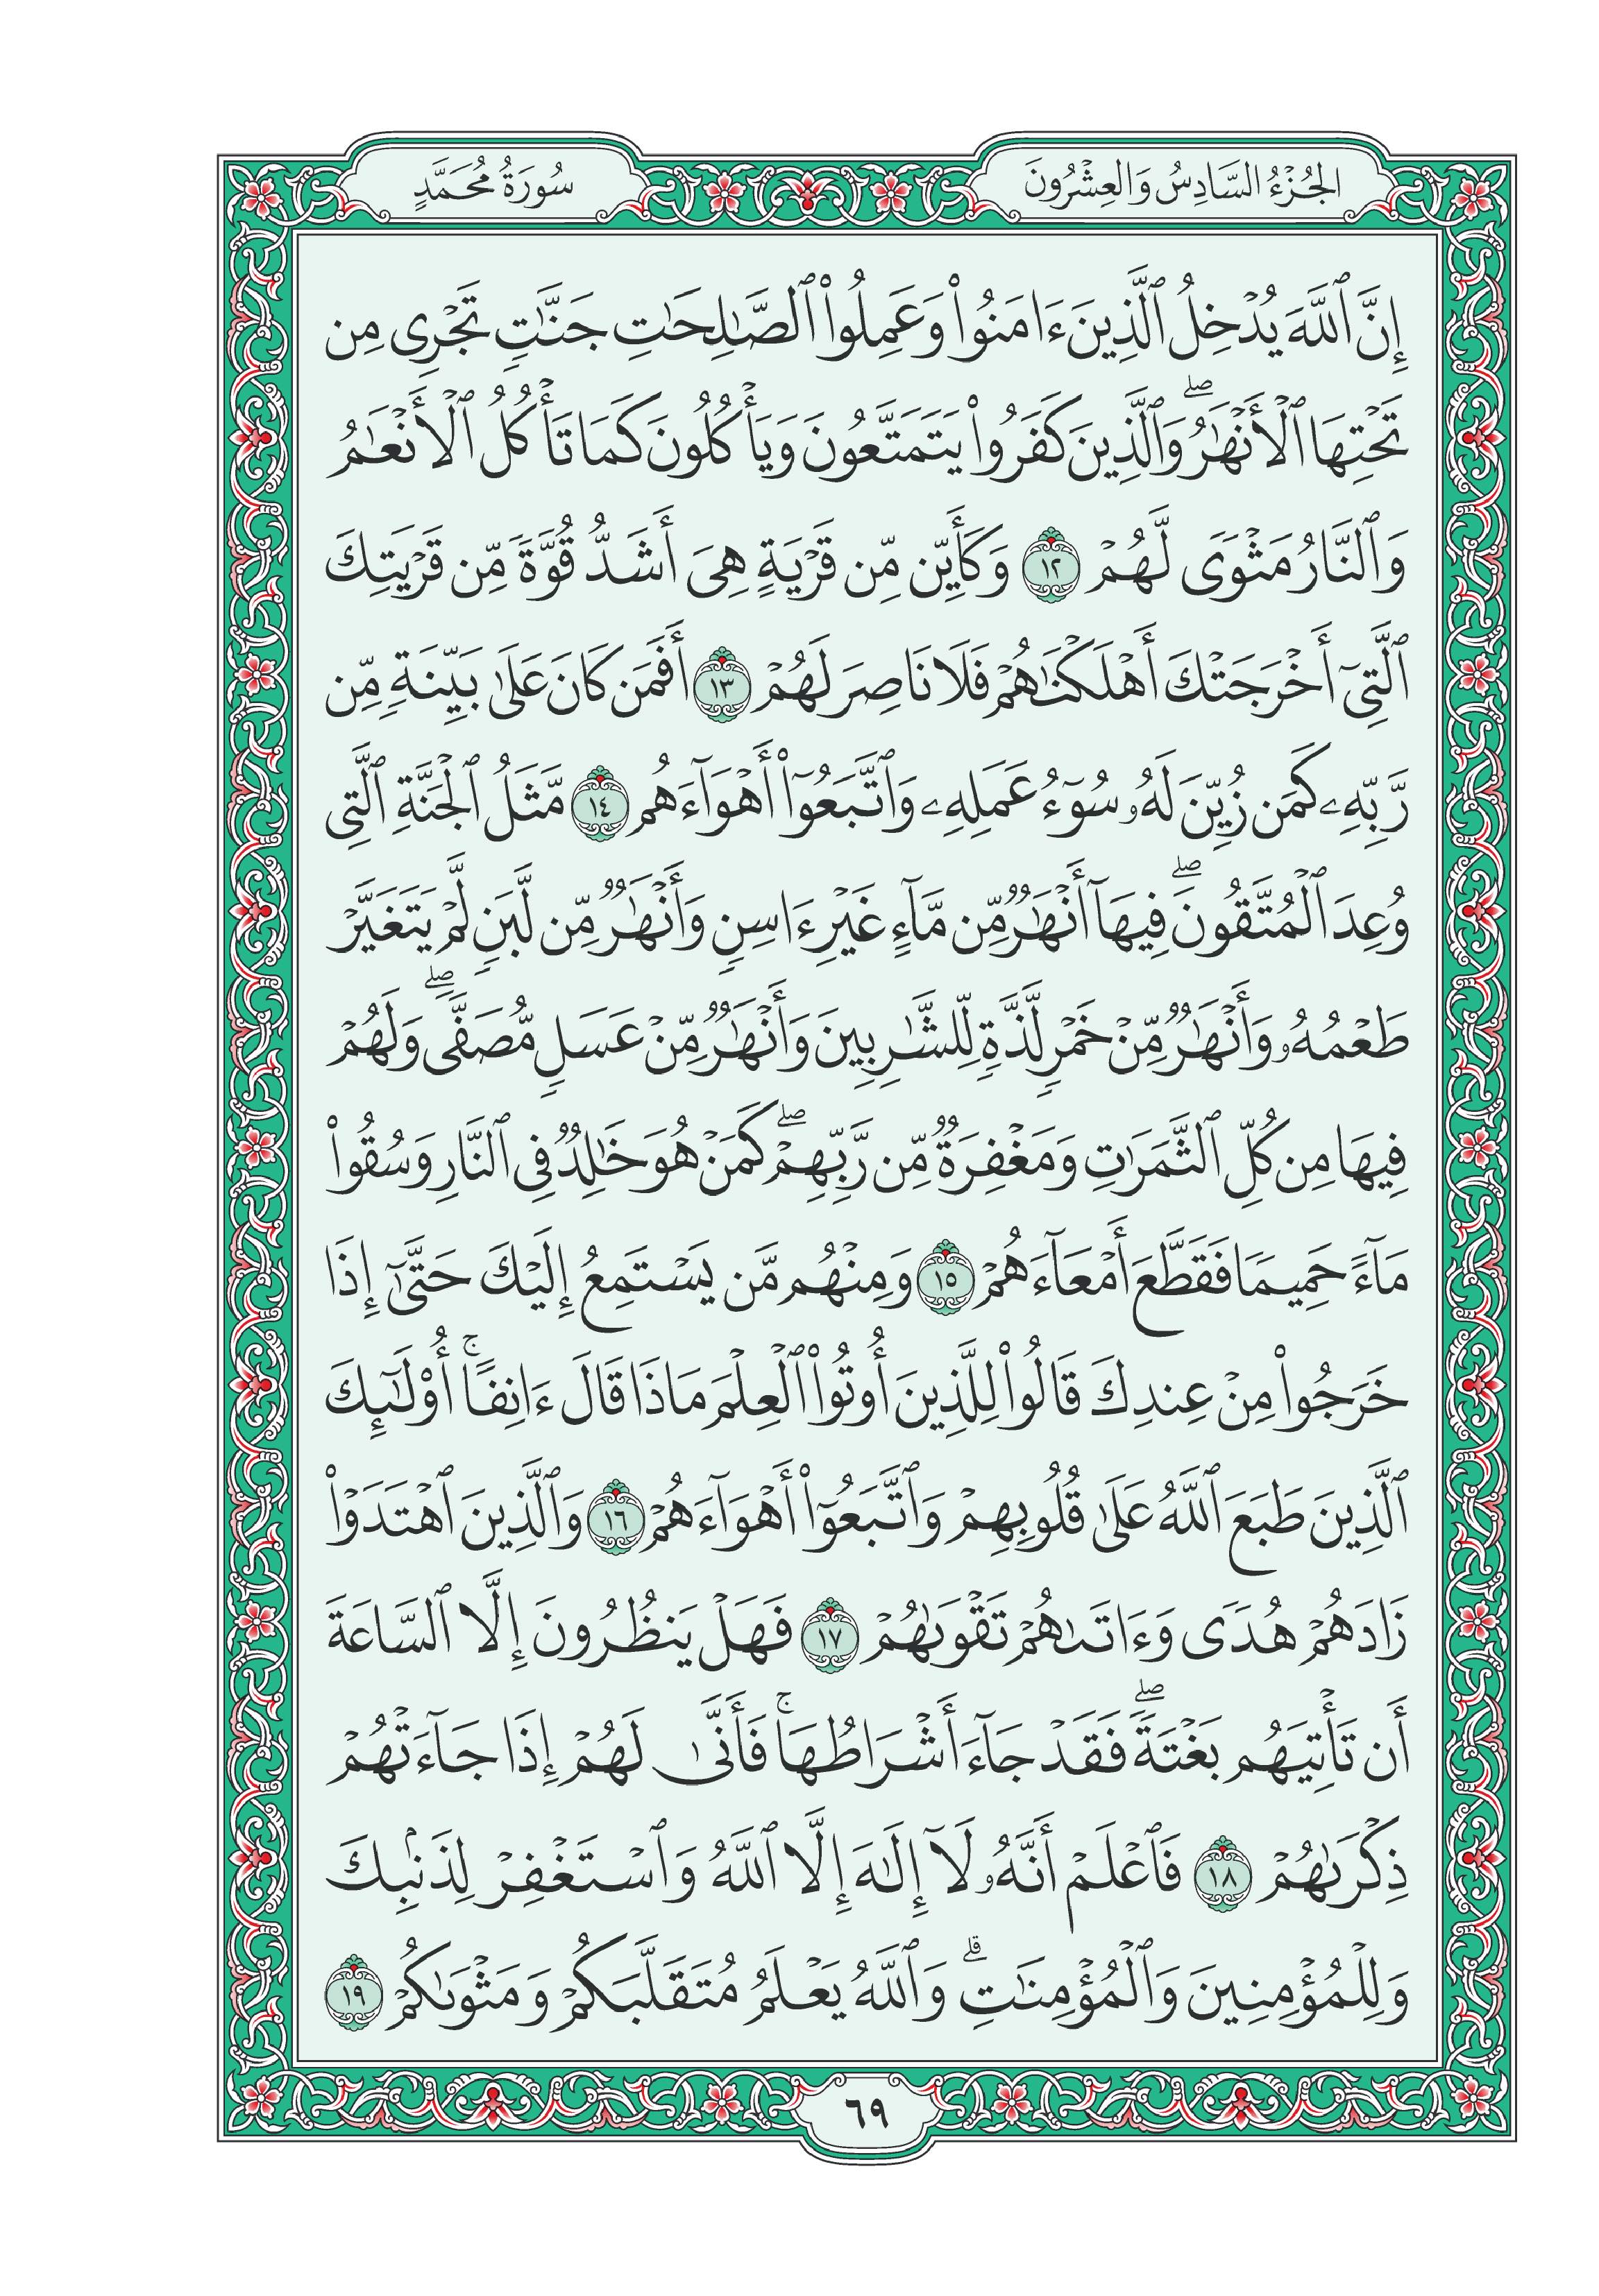 الجُزْءُ السَّادِسُ وَالعِشْرُونَ
سُورَةُ مُحَمَّدٍ
إِنَّ ٱللَّهَ يُدْخِلُ ٱلَّذِينَ ءَامَنُوا۟ وَعَمِلُوا۟ ٱلصَّـٰلِحَـٰتِ جَنَّـٰتٍ تَجْرِى مِن
تَحْتِهَا ٱلْأَنْهَـٰرُ ۖ وَٱلَّذِينَ كَفَرُوا۟ يَتَمَتَّعُونَ وَيَأْكُلُونَ كَمَا تَأْكُلُ ٱلْأَنْعَـٰمُ
وَٱلنَّارُ مَثْوًى لَّهُمْ ١٢ وَكَأَيِّن مِّن قَرْيَةٍ هِىَ أَشَدُّ قُوَّةً مِّن قَرْيَتِكَ
ٱلَّتِىٓ أَخْرَجَتْكَ أَهْلَكْنَـٰهُمْ فَلَا نَاصِرَ لَهُمْ ١٣ أَفَمَن كَانَ عَلَىٰ بَيِّنَةٍ مِّن
رَّبِّهِۦ كَمَن زُيِّنَ لَهُۥ سُوٓءُ عَمَلِهِۦ وَٱتَّبَعُوٓا۟ أَهْوَآءَهُم ١٤ مَّثَلُ ٱلْجَنَّةِ ٱلَّتِى
وُعِدَ ٱلْمُتَّقُونَ ۖ فِيهَآ أَنْهَـٰرٌ مِّن مَّآءٍ غَيْرِ ءَاسِنٍ وَأَنْهَـٰرٌ مِّن لَّبَنٍ لَّمْ يَتَغَيَّرْ
طَعْمُهُۥ وَأَنْهَـٰرٌ مِّنْ خَمْرٍ لَّذَّةٍ لِّلشَّـٰرِبِينَ وَأَنْهَـٰرٌ مِّنْ عَسَلٍ مُّصَفًّى ۖ وَلَهُمْ
فِيهَا مِن كُلِّ ٱلثَّمَرَٰتِ وَمَغْفِرَةٌ مِّن رَّبِّهِمْ ۖ كَمَنْ هُوَ خَـٰلِدٌ فِى ٱلنَّارِ وَسُقُوا۟
مَآءً حَمِيمًا فَقَطَّعَ أَمْعَآءَهُمْ ١٥ وَمِنْهُم مَّن يَسْتَمِعُ إِلَيْكَ حَتَّىٰٓ إِذَا
خَرَجُوا۟ مِنْ عِندِكَ قَالُوا۟ لِلَّذِينَ أُوتُوا۟ ٱلْعِلْمَ مَاذَا قَالَ ءَانِفًا ۚ أُو۟لَـٰٓئِكَ
ٱلَّذِينَ طَبَعَ ٱللَّهُ عَلَىٰ قُلُوبِهِمْ وَٱتَّبَعُوٓا۟ أَهْوَآءَهُمْ ١٦ وَٱلَّذِينَ ٱهْتَدَوْا۟
زَادَهُمْ هُدًى وَءَاتَىٰهُمْ تَقْوَىٰهُمْ ١٧ فَهَلْ يَنظُرُونَ إِلَّا ٱلسَّاعَةَ
أَن تَأْتِيَهُم بَغْتَةً ۖ فَقَدْ جَآءَ أَشْرَاطُهَا ۚ فَأَنَّىٰ لَهُمْ إِذَا جَآءَتْهُمْ
ذِكْرَىٰهُمْ ١٨ فَٱعْلَمْ أَنَّهُۥ لَآ إِلَـٰهَ إِلَّا ٱللَّهُ وَٱسْتَغْفِرْ لِذَنۢبِكَ
وَلِلْمُؤْمِنِينَ وَٱلْمُؤْمِنَـٰتِ ۗ وَٱللَّهُ يَعْلَمُ مُتَقَلَّبَكُمْ وَمَثْوَىٰكُمْ ١٩
٦٩